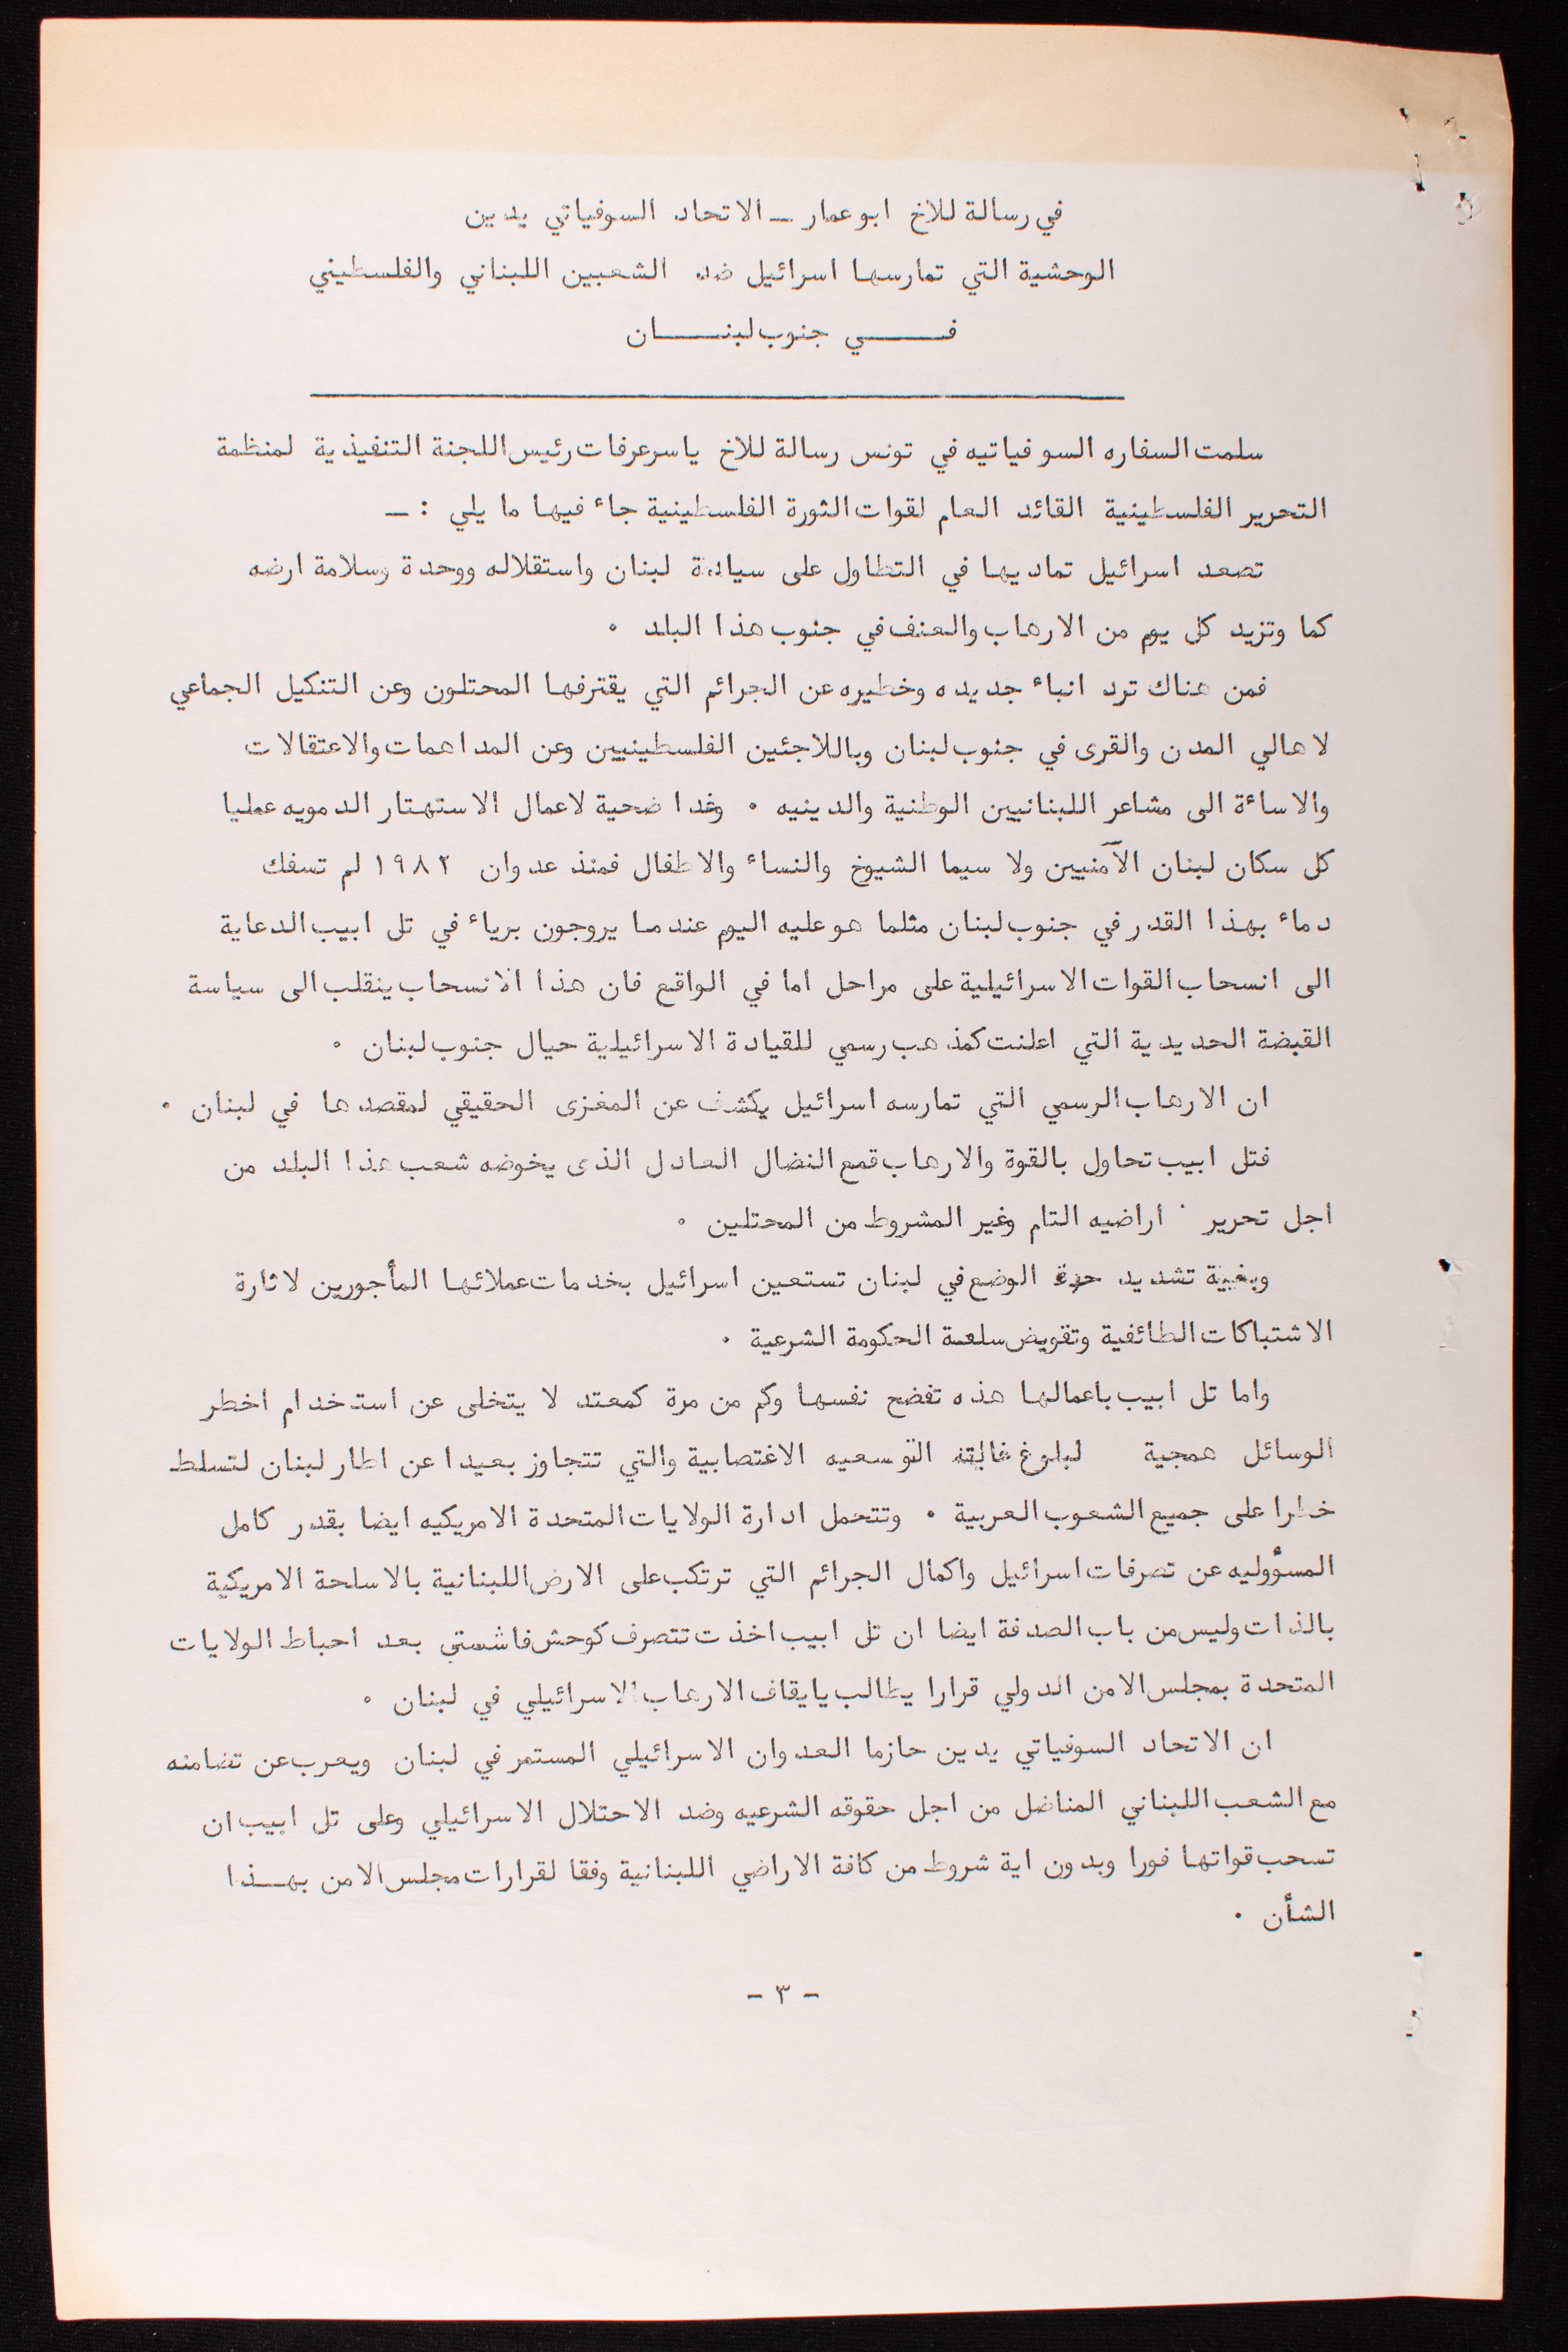 في رسالة للاخ ابوعمار ـ الاتحاد السوفياتي يدين
الوحشية التي تمارسها اسرائيل ضد الشعبين اللبناني والفلسطيني
فـــــي جنوب لبنـــــان
سلمت السفاره السوفياتيه في تونس رسالة للاخ ياسرعرفات رئيس اللجنة التنفيذية لمنظمة
التحرير الفلسطينية القائد العام لقوات الثورة الفلسطينية جاء فيها ما يلي : ـ
تصعد اسرائيل تماديها في التطاول على سيادة لبنان واستقلاله ووحدة وسلامة ارضه
كما وتزيد كل يوم من الارهاب والعنف في جنوب هذا البلد ٠
فمن هناك ترد انباء جديده وخطيره عن الجرائم التي يقترفها المحتلون وعن التنكيل الجماعي
لاهالي المدن والقرى في جنوب لبنان وباللاجئين الفلسطينيين وعن المداهمات والاعتقالات
والاساءة الى مشاعر اللبنانيين الوطنية والدينيه ٠ وغدا ضحية لاعمال الاستهتار الدمويه عمليا
كل سكان لبنان الآمنيين ولا سيما الشيوخ والنساء والاطفال فمنذ عدوان ١٩٨٢ لم تسفك
دماء بهذا القدر في جنوب لبنان مثلما هو عليه اليوم عندما يروجون برياء في تل ابيب الدعاية
الى انسحاب القوات الاسرائيلية على مراحل اما في الواقع فان هذا الانسحاب ينقلب الى سياسة
القبضة الحديدية التي اعلنت كمذهب رسمي للقيادة الاسرائيلية حيال جنوب لبنان ٠
ان الارهاب الرسمي التي تمارسه اسرائيل يكشف عن المغزى الحقيقي لمقصدها في لبنان ٠
فتل ابيب تحاول بالقوة والارهاب قمع النضال العادل الذى يخوضه شعب هذا البلد من
اجل تحرير اراضيه التام وغير المشروط من المحتلين ٠
وبغية تشديد حدة الوضع في لبنان تستعين اسرائيل بخدمات عملائها المأجورين لاثارة
الاشتباكات الطائفية وتقويض سلعة الحكومة الشرعية ٠
واما تل ابيب باعمالها هذه تفضح نفسها وكم من مرة كمعتد لا يتخلى عن استخدام اخطر
الوسائل همجية لبلوغ التوسعيه الاغتصابية والتي تتجاوز بعيدا عن اطار لبنان لتسلط
خطرا على جميع الشعوب العربية ٠ وتتحمل ادارة الولايات المتحدة الامريكيه ايضا بقدر كامل
المسؤوليه عن تصرفات اسرائيل واكمال الجرائم التي ترتكب على الارض اللبنانية بالاسلحة الامريكية
بالذات وليس من باب الصدفة ايضا ان تل ابيب اخذت تتصرف كوحش فاشستي بعد احباط الولايات
المتحدة بمجلس الامن الدولي قرارا يطالب يايقاف الارهاب الاسرائيلي في لبنان ٠
ان الاتحاد السوفياتي يدين حازما العدوان الاسرائيلي المستمر في لبنان ويعرب عن تضامنه
مع الشعب اللبناني المناضل من اجل حقوقه الشرعيه وضد الاحتلال الاسرائيلي وعلى تل ابيب ان
تسحب قواتها فورا وبدون اية شروط من كافة الاراضي اللبنانية وفقا لقرارات مجلس الامن بهـــذا
الشأن ٠
- ٣ -